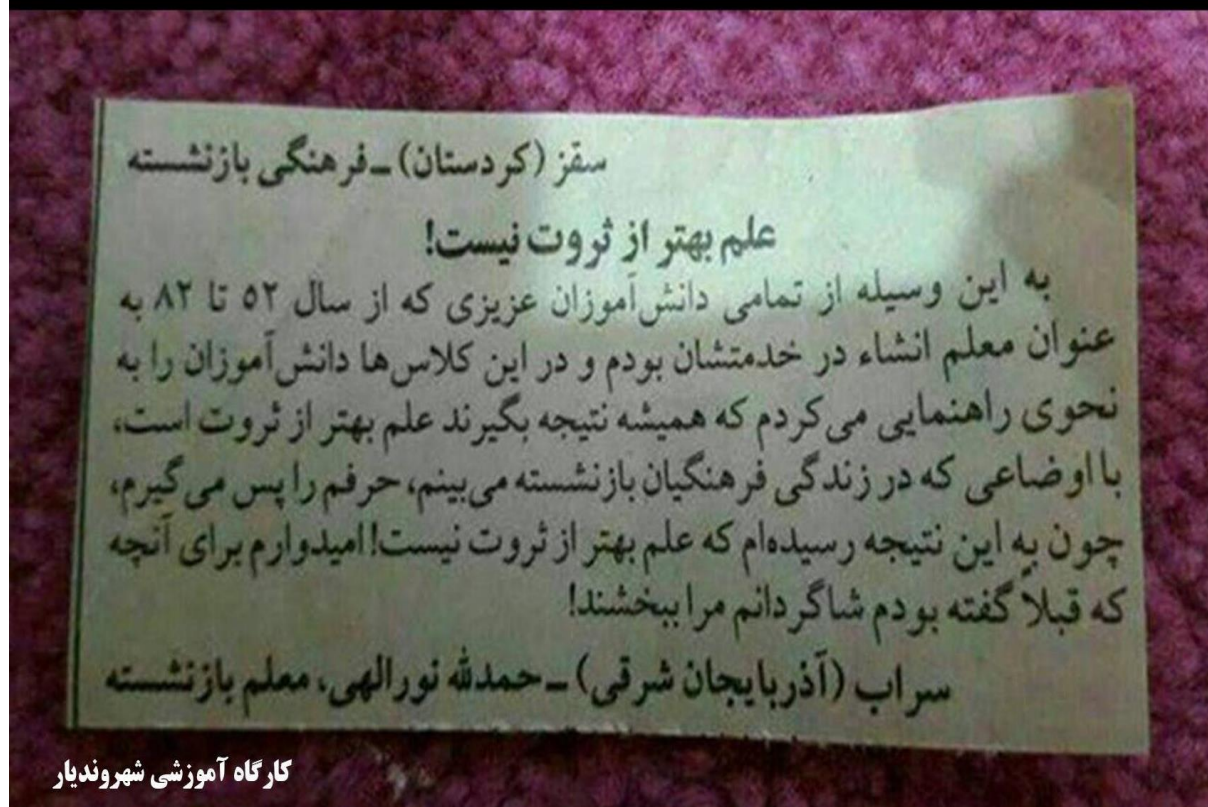 سقز (کردستان) ـ فرهنگی بازنشسته
علم بهتر از ثروت نیست!
به این وسیله از تمامی دانش‌آموزان عزیزی که از سال ۵۲ تا ۸۲ به
عنوان معلم انشاء در خدمتشان بودم و در این کلاس‌ها دانش‌آموزان را به
نحوی راهنمایی می‌کردم که همیشه نتیجه بگیرند علم بهتر از ثروت است،
با اوضاعی که در زندگی فرهنگیان بازنشسته می‌بینم، حرفم را پس می‌گیرم،
چون به این نتیجه رسیده‌ام که علم بهتر از ثروت نیست! امیدوارم برای آنچه
که قبلاً گفته بودم شاگردانم مرا ببخشند!
سراب (آذربایجان شرقی) ـ حمدلله نورالهی، معلم بازنشسته
کارگاه آموزشی شهروندیار